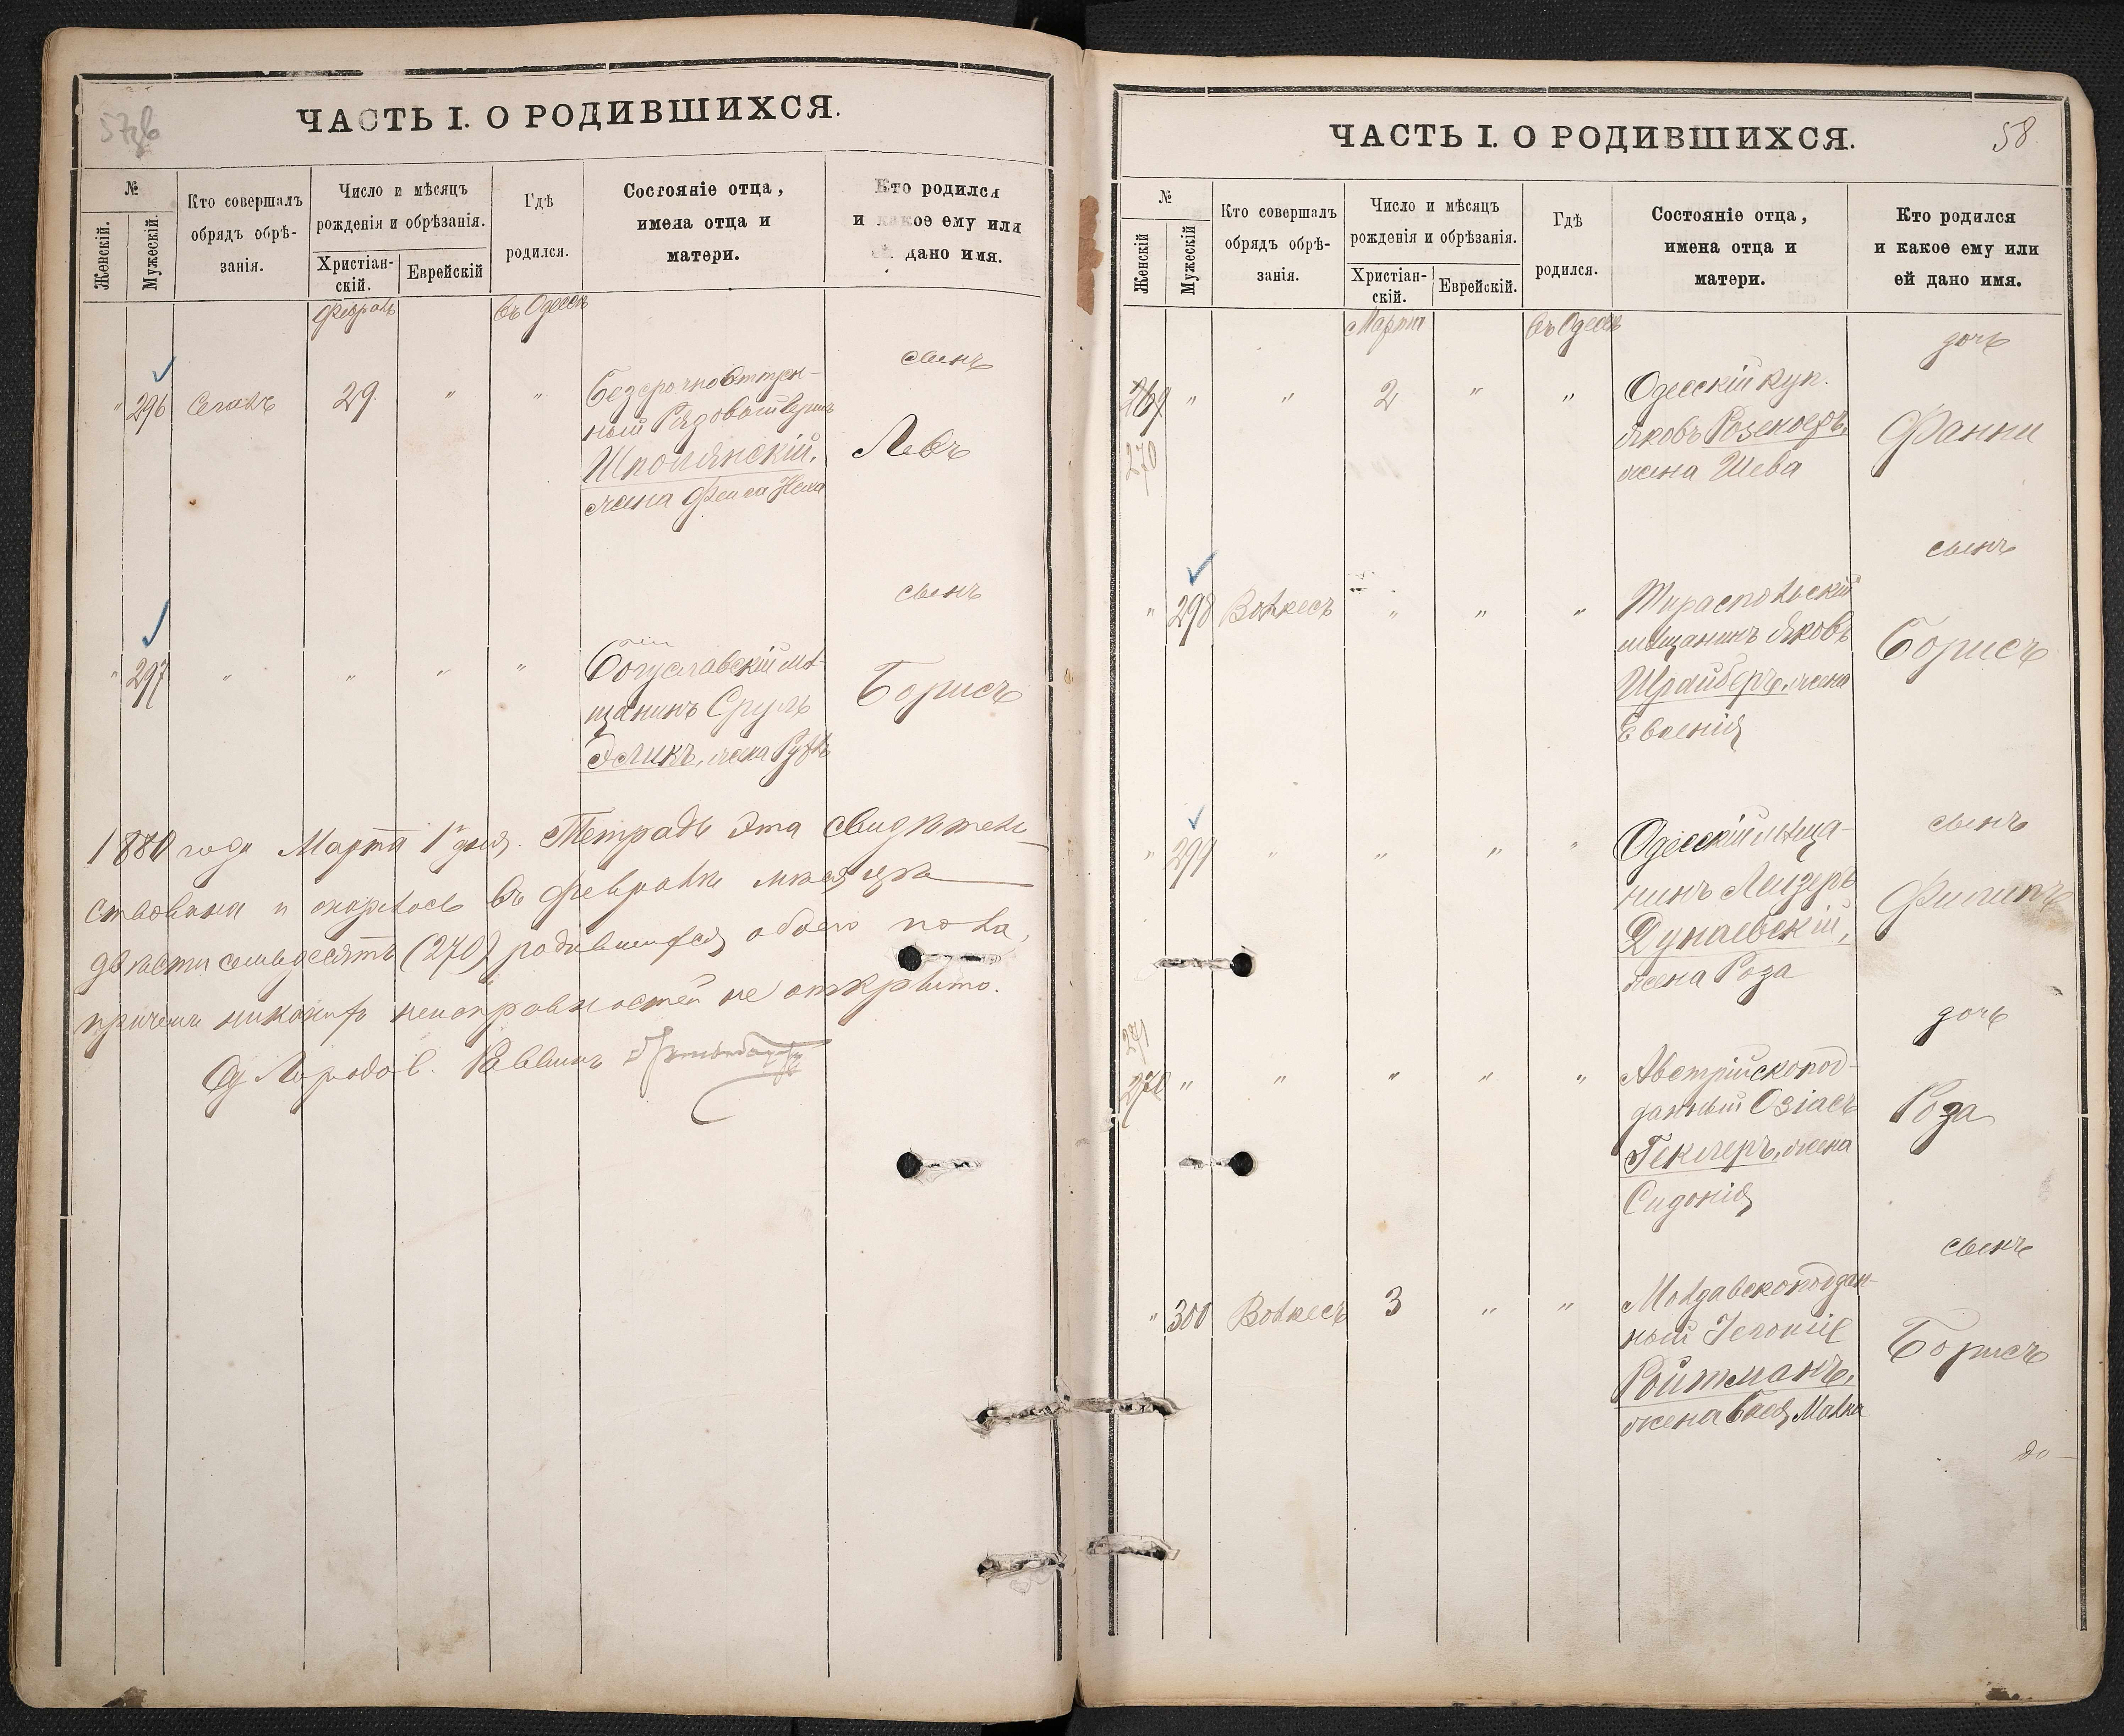 57об
ЧАСТЬ I. О РОДИВШИХСЯ.
№
Женскій.
Мужескій.
Кто совершалъ
обрядъ обрѣ-
занія.
Число и мѣсяцъ
рожденія и обрѣзанія.
Христіан-
скій.
Еврейскій
Гдѣ
родился.
Состояніе отца,
имена отца и
матери.
Кто родился
и какое ему или
ей дано имя.
Февраль
въ Одессѣ
" 296 Сегалъ 29. " "
Безсрочно Отпуск-
ный Рядовой
Шполянскій,
жена Фейга
сынъ
Левъ
" 297 " " " "
Богуславскій мѣ-
щанинъ Сруль
Эликъ, жена Руфль
сынъ
Борисъ
1880 года Марта 1 дня. Тетрадь эта свидѣтель-
ствована и оказалось въ Февралѣ мѣсяцѣ
двѣсти семьдесятъ (270) родившихся обоего пола,
причемъ никакихъ неисправностей не открыто.
Од. Городов. Раввинъ
ЧАСТЬ I. О РОДИВШИХСЯ.
58.
№
Женскій
Мужескій
Кто совершалъ
обрядъ обрѣ-
занія.
Число и мѣсяцъ
рожденія и обрѣзанія.
Христіан-
скій.
Еврейскій.
Гдѣ
родился.
Состояніе отца,
имена отца и
матери.
Кто родился
и какое ему или
ей дано имя.
Мартъ
въ Одессѣ
269 " " 2 " "
270
Одесскій куп.
Яковъ Розеноеръ,
жена Шева
дочь
Фанни
" 298 Волкесъ " " "
Тираспольскій
мѣщанинъ Яковъ
Шрайберъ, жена
Евгенія
сынъ
Борисъ
" 299 " " " "
Одесскій мѣща-
нинъ Лейзеръ
Дунаевскій,
жена Роза
сынъ
Филипъ
271
270 " " " " "
Австрійскопод-
данный Озіасъ
Геклеръ, жена
Сидонія
дочь
Роза
" 300 Волкесъ 3 " "
Молдавскоподдан-
ный
Ройтманъ,
жена Бася Малка
сынъ
Борисъ
до-